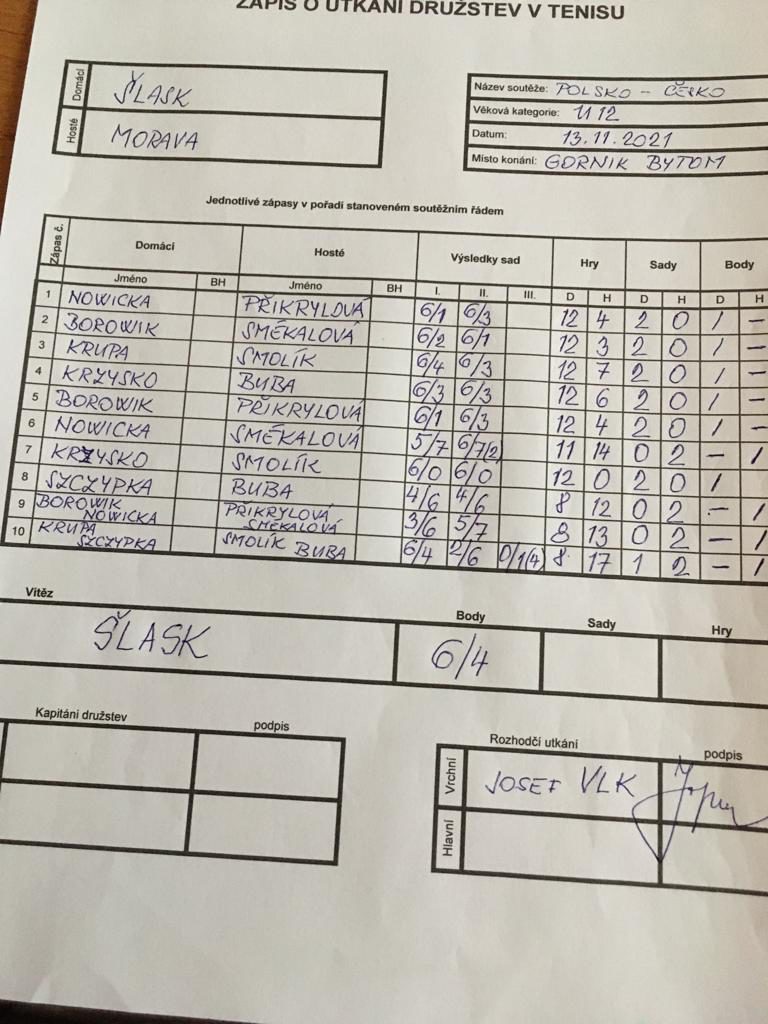 ZÁPIS O UTKÁNÍ DRUŽSTEV V TENISU
Domácí ŠLASK
Hosté MORAVA
Název soutěže: POLSKO - ČESKO
Věková kategorie: U12
Datum: 13.11.2021
Místo konání: GORNIK BYTOM
Jednotlivé zápasy v pořadí stanoveném soutěžním řádem
Zápas č. Domácí Hosté Výsledky sad Hry Sady Body
Jméno BH Jméno BH I. II. III. D H D H D H
1 NOWICKA PŘIKRYLOVÁ 6/1 6/3 12 4 2 0 / -
2 BOROWIK SMÉKALOVÁ 6/2 6/1 12 3 2 0 / -
3 KRUPA SMOLÍK 6/4 6/3 12 7 2 0 / -
4 KRZYSKO BUBA 6/3 6/3 12 6 2 0 / -
5 BOROWIK PŘIKRYLOVÁ 6/1 6/3 12 4 2 0 / -
6 NOWICKA SMÉKALOVÁ 5/7 6/7(2) 11 14 0 2 - /
7 KRZYSKO SMOLÍK 6/0 6/0 12 0 2 0 /
8 SZCZYPKA BUBA 4/6 4/6 8 12 0 2 - /
9 BOROWIK NOWICKA PŘIKRYLOVÁ SMÉKALOVÁ 3/6 5/7 8 13 0 2 - /
10 KRUPA SZCZYPKA SMOLÍK BUBA 6/4 2/6 0/1(4) 8 17 1 2 - /
Vítěz Body Sady Hry
ŠLASK 6/4
Kapitáni družstev podpis
Rozhodčí utkání podpis
Vrchní JOSEF VLK
Hlavní